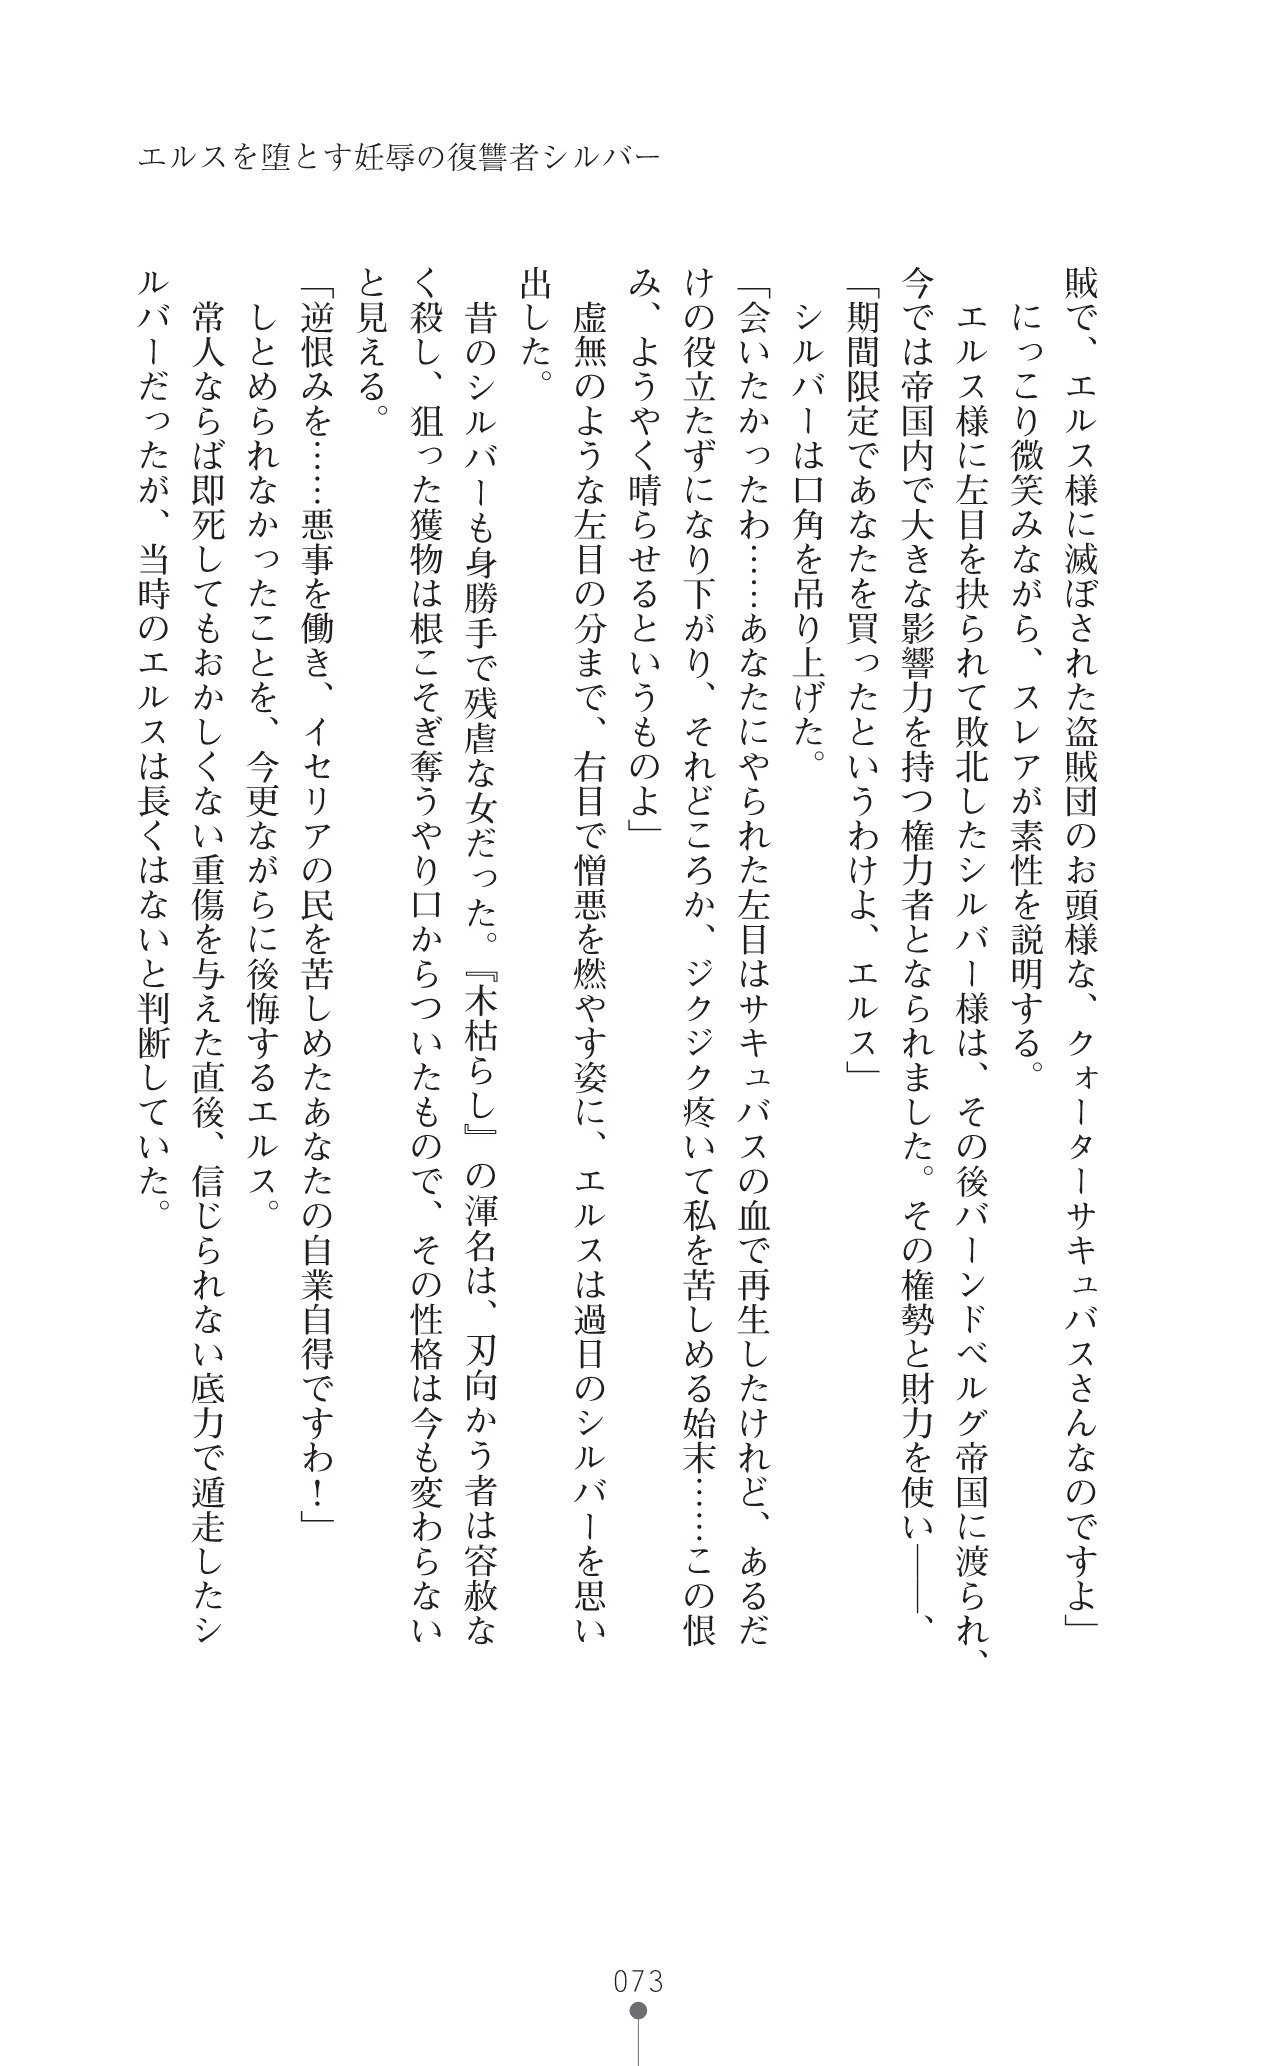 エルスを堕とす妊辱の復讐者シルバー
賊で、エルス様に滅ぼされた盗賊団のお頭様な、クォーターサキュバスさんなのですよ」
にっこり微笑みながら、スレアが素性を説明する。
エルス様に左目を抉られて敗北したシルバー様は、その後バーンドベルグ帝国に渡られ、
今では帝国内で大きな影響力を持つ権力者となられました。その権勢と財力を使い――、
「期間限定であなたを買ったというわけよ、エルス」
シルバーは口角を吊り上げた。
「会いたかったわ……あなたにやられた左目はサキュバスの血で再生したけれど、あるだ
けの役立たずになり下がり、それどころか、ジクジク疼いて私を苦しめる始末……この恨
み、ようやく晴らせるというものよ」
虚無のような左目の分まで、右目で憎悪を燃やす姿に、エルスは過日のシルバーを思い
出した。
昔のシルバーも身勝手で残虐な女だった。『木枯らし』の渾名は、刃向かう者は容赦な
く殺し、狙った獲物は根こそぎ奪うやり口からついたもので、その性格は今も変わらない
と見える。
「逆恨みを……悪事を働き、イセリアの民を苦しめたあなたの自業自得ですわ！」
しとめられなかったことを、今更ながらに後悔するエルス。
常人ならば即死してもおかしくない重傷を与えた直後、信じられない底力で遁走したシ
ルバーだったが、当時のエルスは長くはないと判断していた。
073